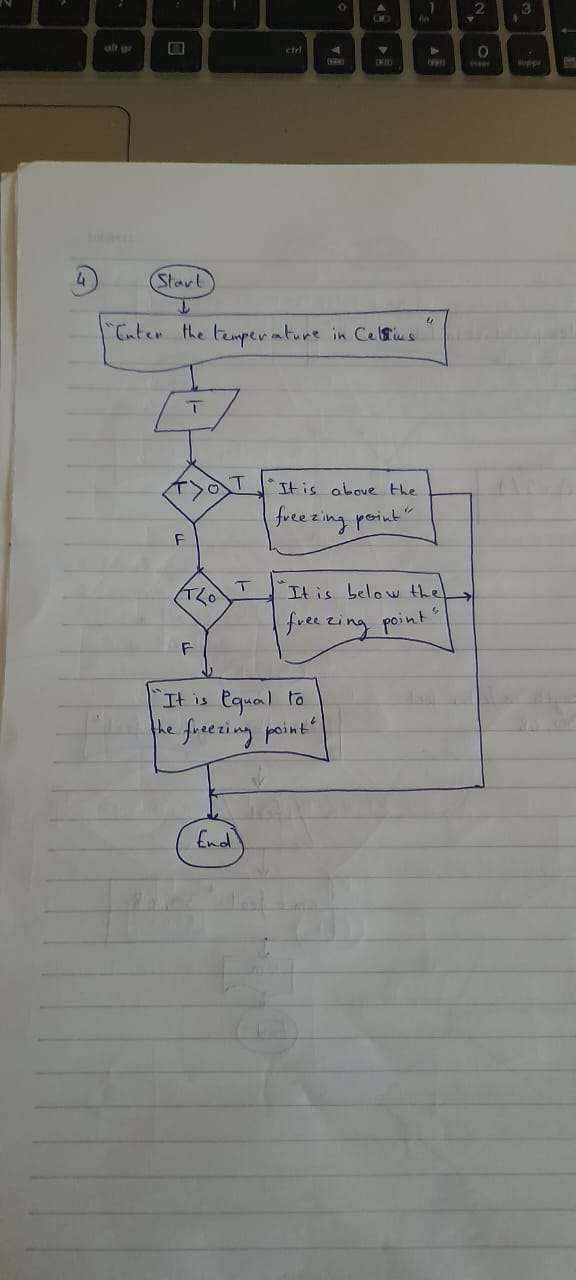 alt gr
ctrl
1
fin
2
3
0
inser
suppr
4
Start
"Enter the temperature in Celsius"
T
T>0
T
"It is above the
freezing point"
F
T<0
T
"It is below the
freezing point"
F
"It is Equal to
the freezing point"
End